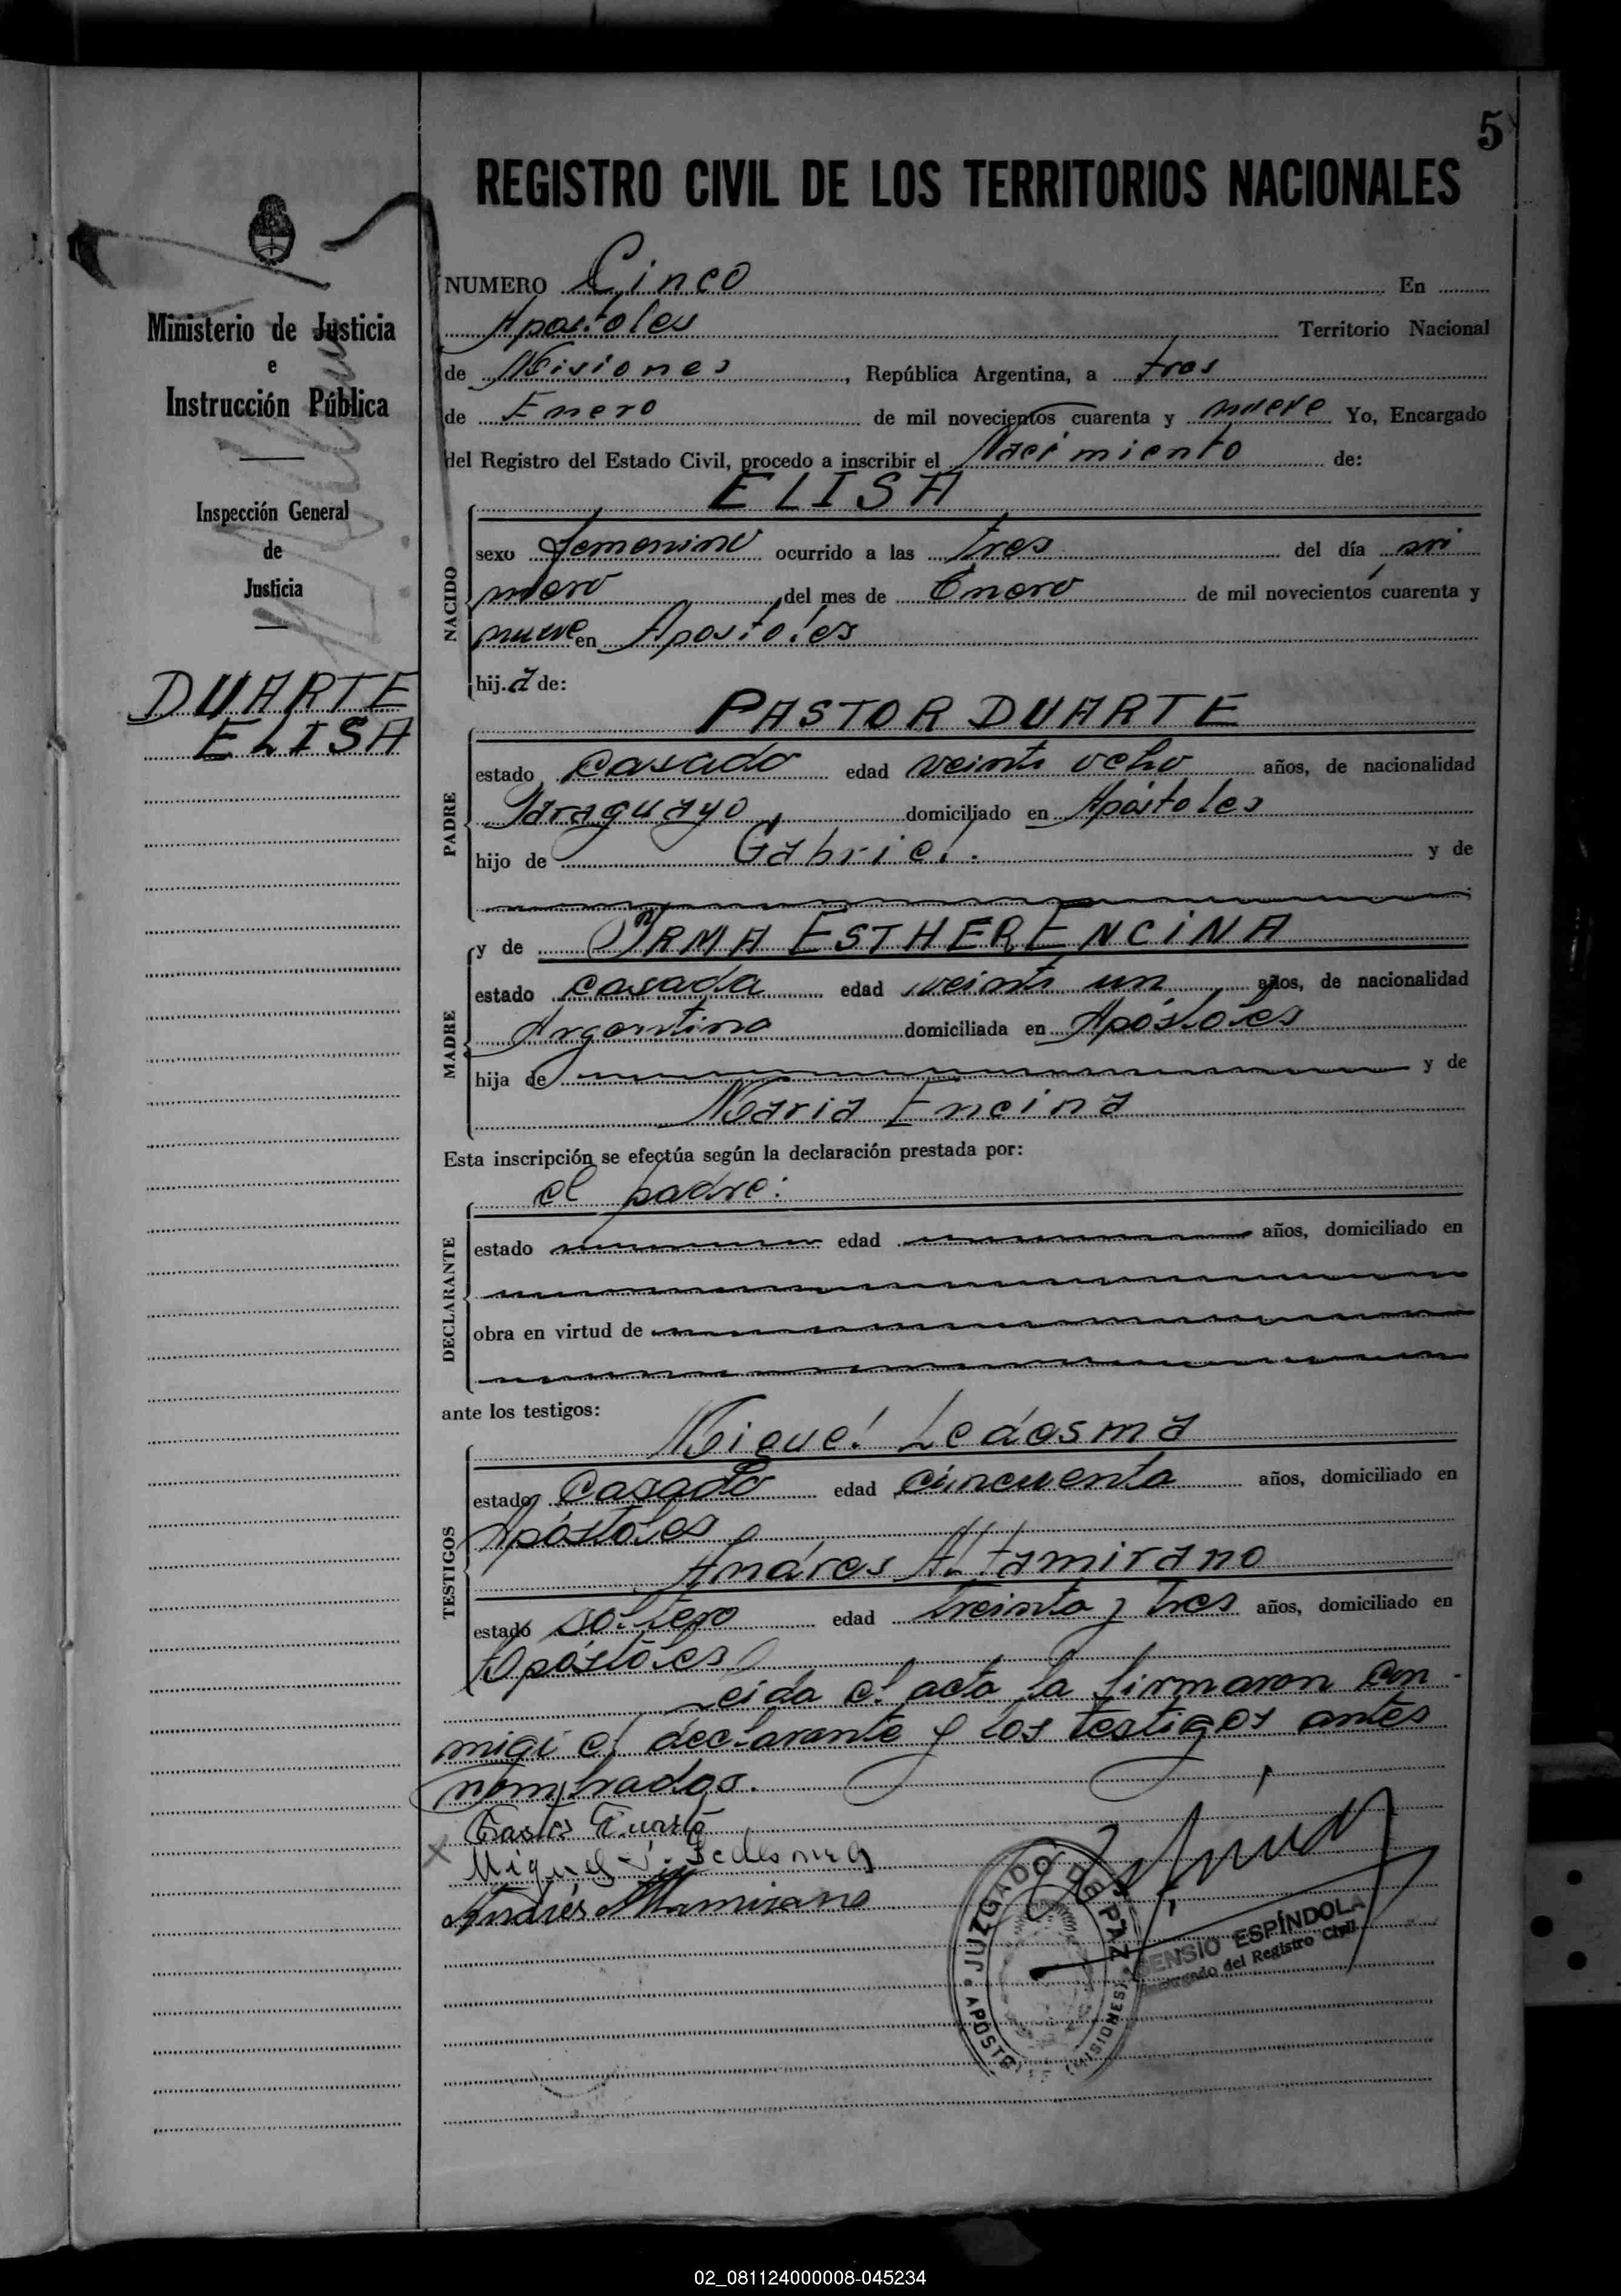 5
REGISTRO CIVIL DE LOS TERRITORIOS NACIONALES
Ministerio de Justicia
e
Instrucción Pública
Inspección General
de
Justicia
DUARTE
ELISA
NUMERO Cinco En
Apostoles Territorio Nacional
de Misiones, República Argentina, a tres
de Enero de mil novecientos cuarenta y nueve Yo, Encargado
del Registro del Estado Civil, procedo a inscribir el Nacimiento de:
ELISA
NACIDO
sexo femenino ocurrido a las tres del día pri
mero del mes de Enero de mil novecientos cuarenta y
nueve en Apostoles
hija de:
PASTOR DUARTE
PADRE
estado casado edad veinti ocho años, de nacionalidad
Paraguayo domiciliado en Apóstoles
hijo de Gabriel. y de
y de IRMA ESTHER ENCINA
MADRE
estado casada edad veinti un años, de nacionalidad
Argentina domiciliada en Apóstoles
hija de y de
Maria Encina
Esta inscripción se efectúa según la declaración prestada por:
el padre:
DECLARANTE
estado edad años, domiciliado en
obra en virtud de
ante los testigos:
Miguel Ledesma
TESTIGOS
estado Casado edad cincuenta años, domiciliado en
Apóstoles
Andres Altamirano
estado soltero edad treinta y tres años, domiciliado en
Apóstoles
Leida el acta la firmaron con
migi el declarante y los testigos antes
nombrados.
Miguel J. Ledesma
Andrés Altamirano
JUZGADO DE PAZ
APÓSTOLES (MISIONES)
ASENSIO ESPÍNDOLA
Encargado del Registro Civil
02_081124000008-045234